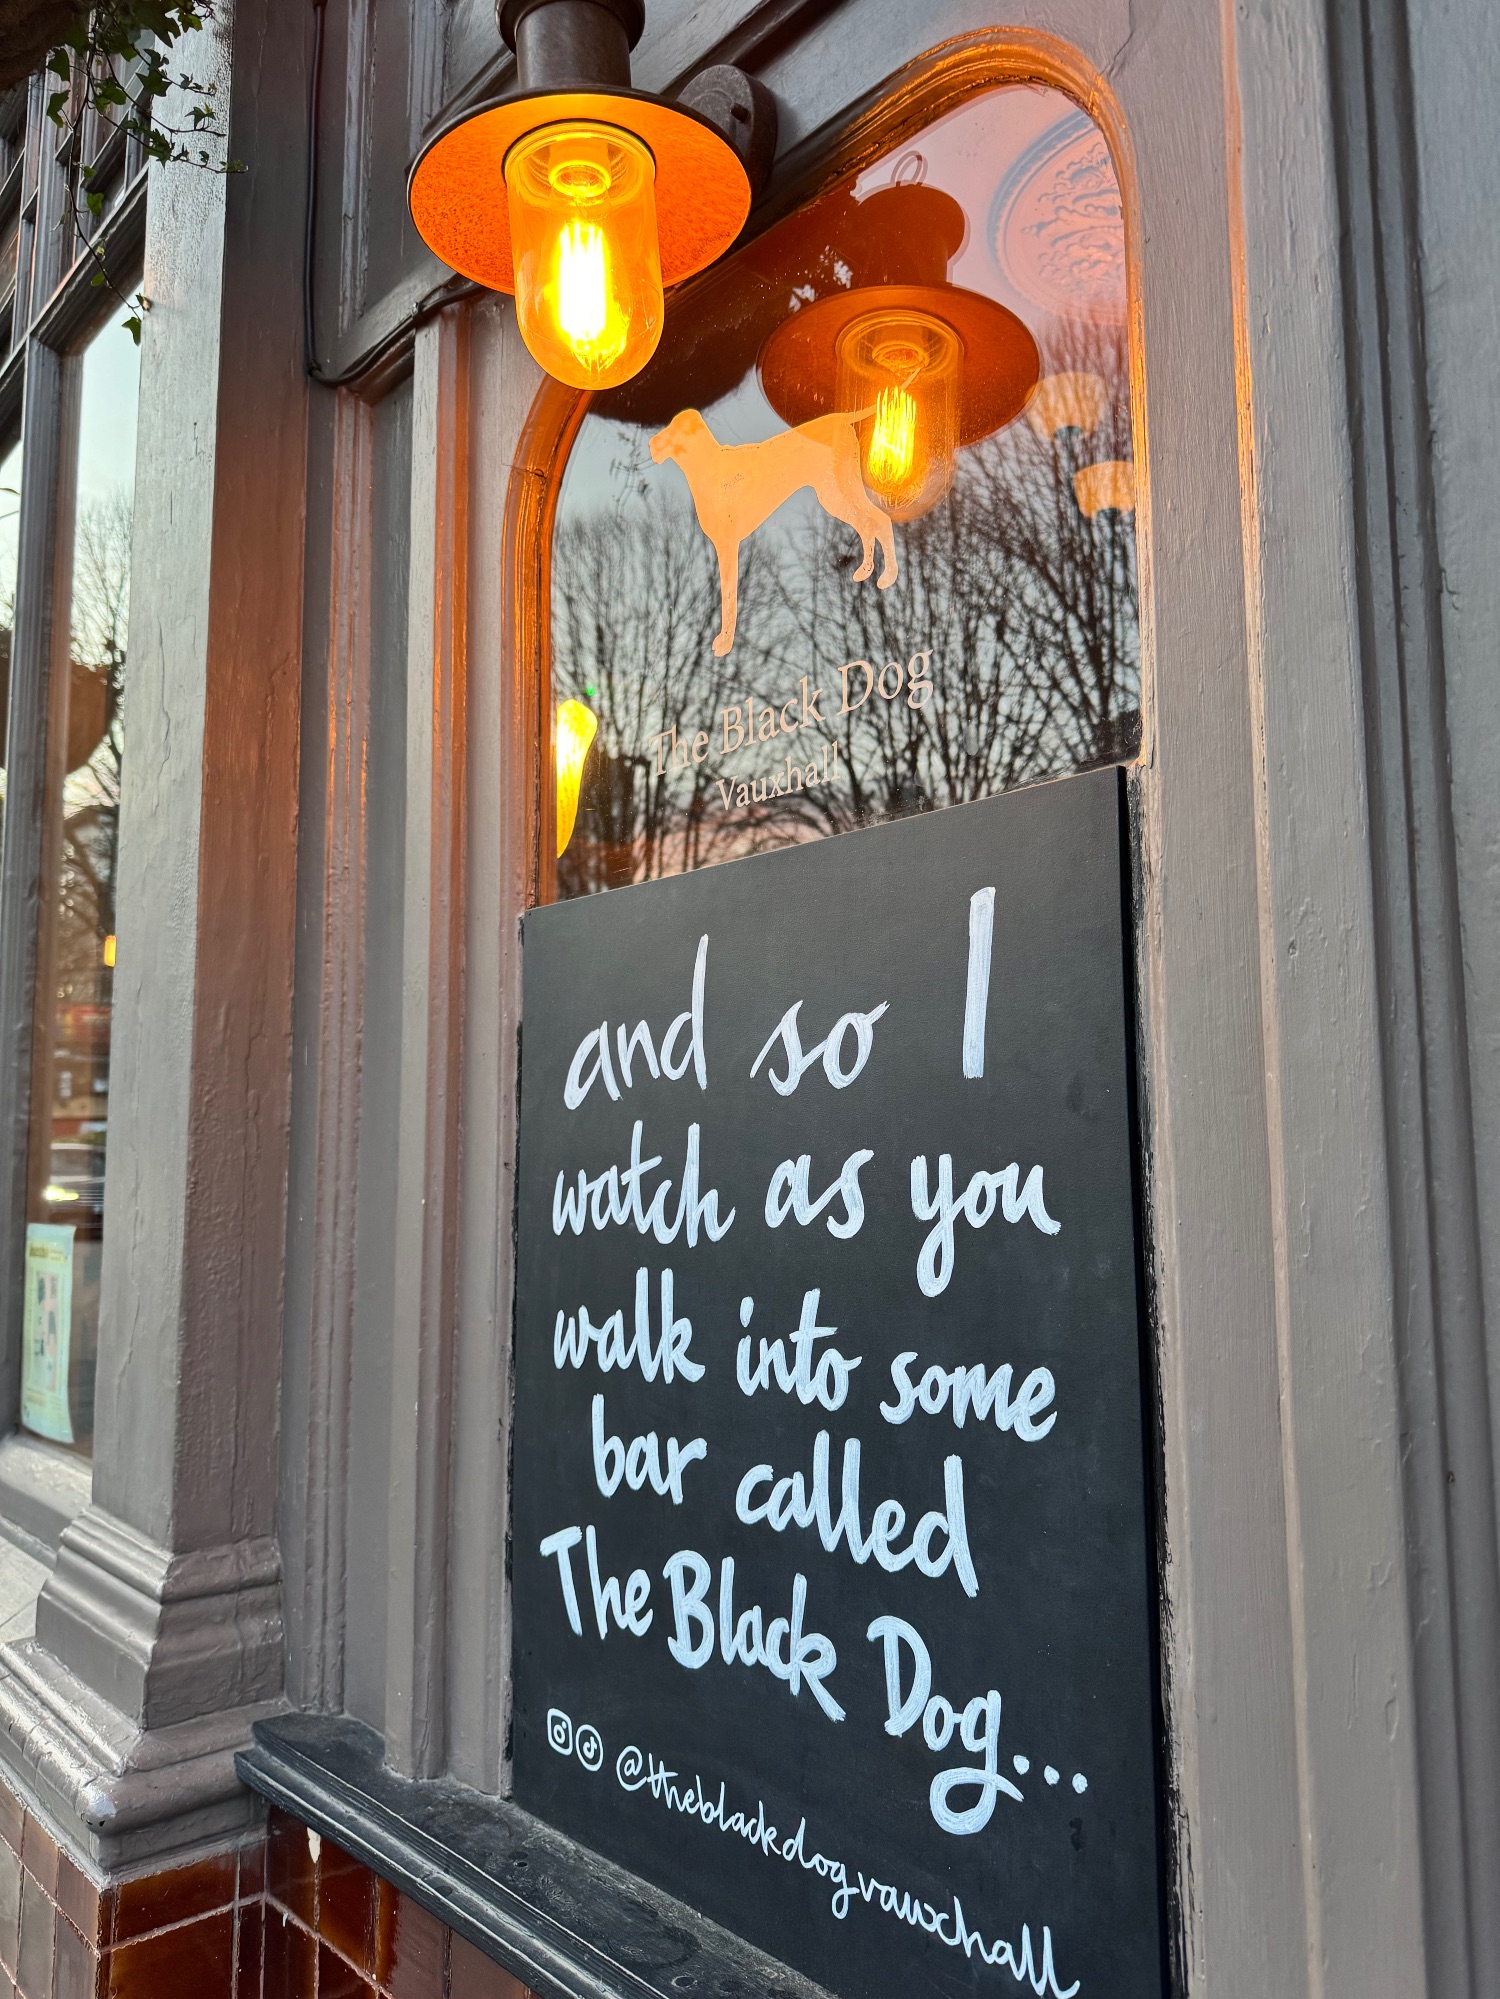 The Black Dog
Vauxhall
and so I
watch as you
walk into some
bar called
The Black Dog...
@theblackdogvauxhall